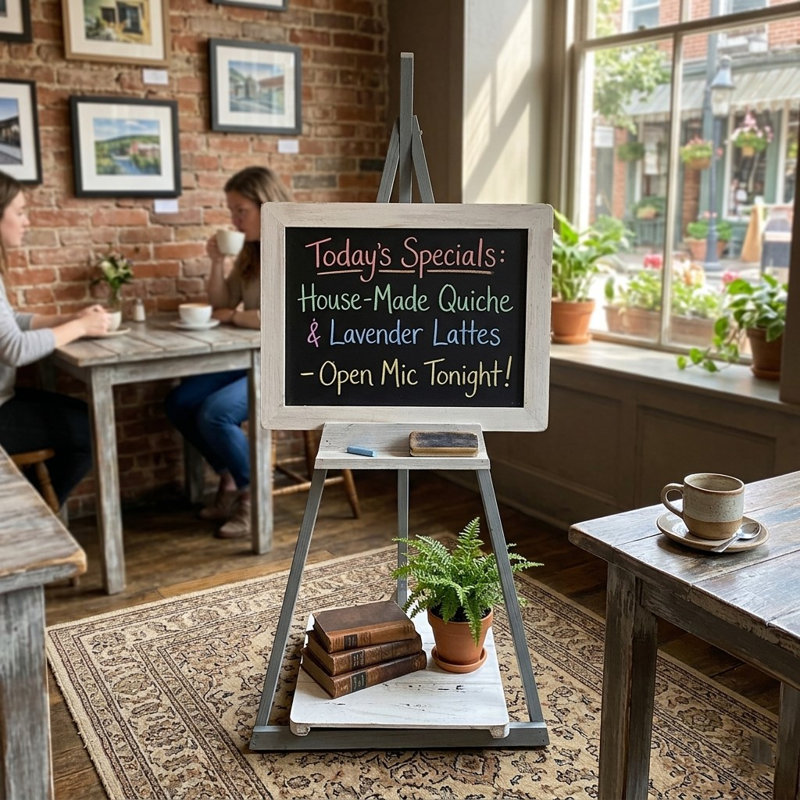 Today's Specials:
House-Made Quiche
& Lavender Lattes
- Open Mic Tonight!